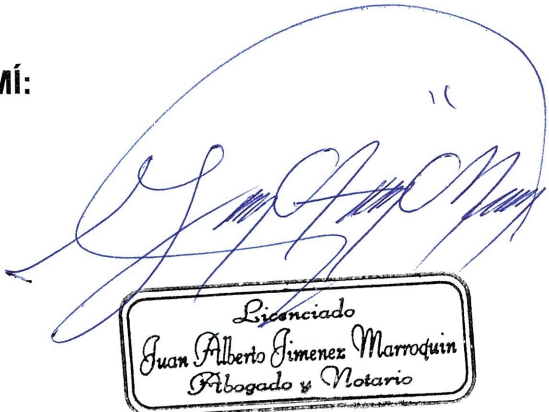 MÍ:
Licenciado
Juan Alberto Jimenez Marroquin
Abogado y Notario